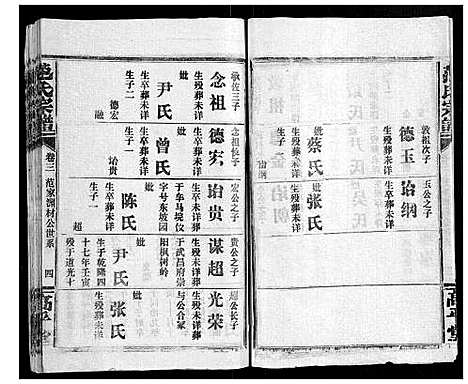 敦祖次子
德玉
生殁葬未详
玉公之子
诒纲
生殁葬未详
妣
蔡氏
生殁葬未详
生子一
诒纲
妣
张氏
生殁葬未详
范氏宗谱
卷三
范家湖材公世系
四
高平堂
承佐三子
念祖
生殁葬未详
妣
尹氏
生卒葬未详
生子二
德宏
融
念祖长子
德宏
生殁葬未详
妣
曾氏
生卒葬未详
生子一
诒贵
宏公之子
诒贵
生殁未详葬
于牟马堤仪
字号东坡园
阳枫树岭
妣
陈氏
生卒葬未详
生子一
超
贵公之子
谋超
生殁未详葬
于武昌府崇
妣
尹氏
生于乾隆四
十七年壬寅
殁于道光十
超公长子
光荣
生殁未详葬
与公合冢
妣
张氏
生殁葬未详